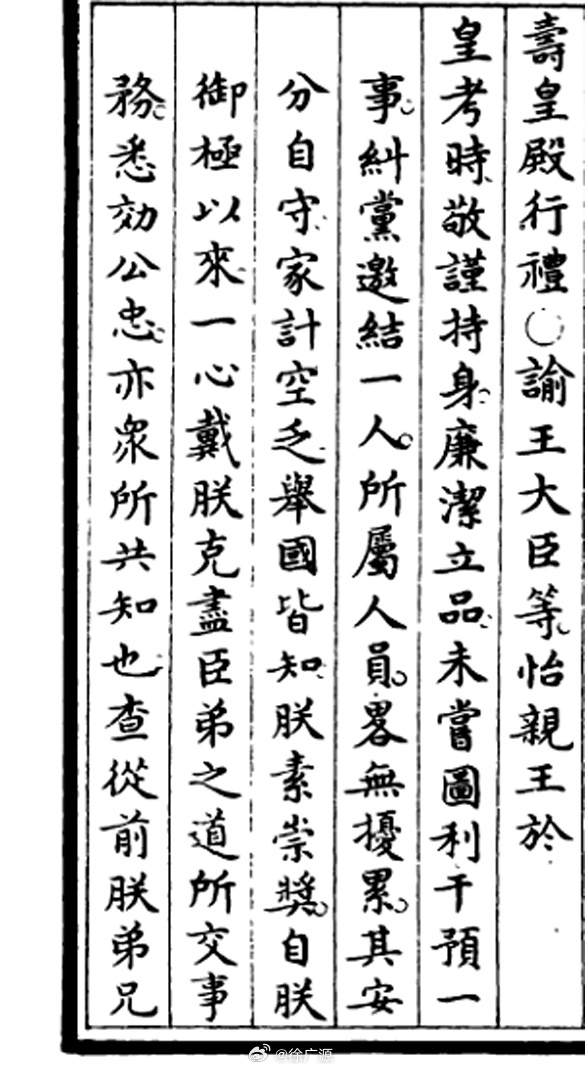 壽皇殿行禮○諭王大臣等怡親王於
皇考時敬謹持身廉潔立品未嘗圖利干預一
事糾黨邀結一人所屬人員畧無擾累其安
分自守家計空乏舉國皆知朕素崇奬自朕
御極以來一心戴朕克盡臣弟之道所交事
務悉効公忠亦衆所共知也查從前朕弟兄
@徐广源